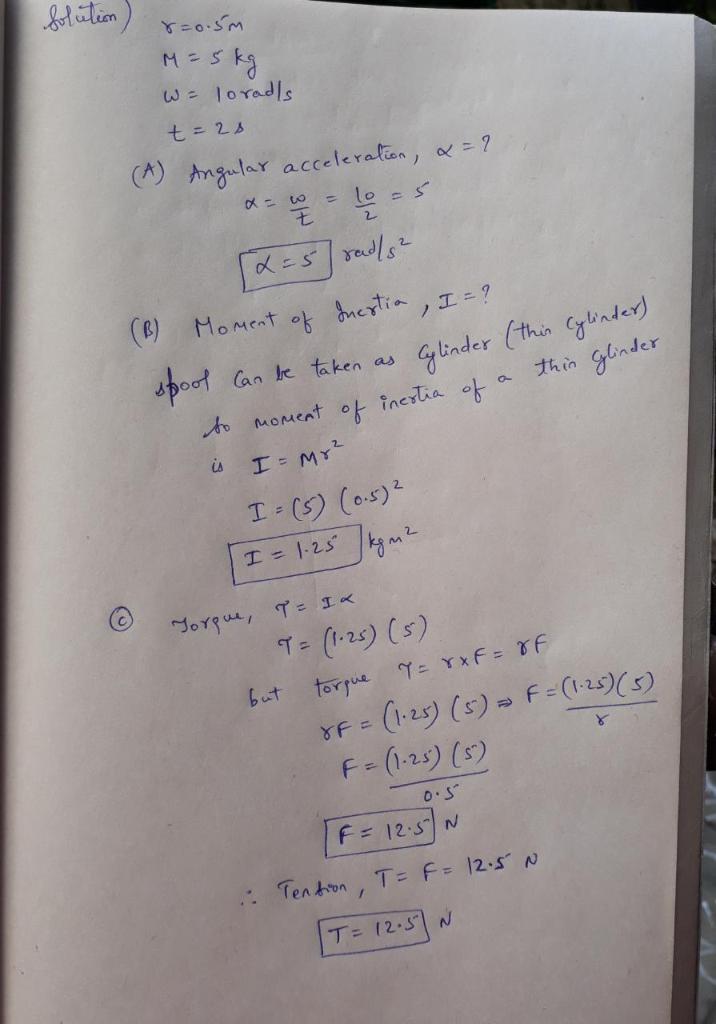 Solution)
r = 0.5m
M = 5 kg
w = 10 rad/s
t = 2s
(A) Angular acceleration, α = ?
α = ω/t = 10/2 = 5
α = 5 rad/s²
(B) Moment of Inertia, I = ?
spool can be taken as cylinder (thin cylinder)
so moment of inertia of a thin cylinder
is I = Mr²
I = (5) (0.5)²
I = 1.25 kg m²
(C) Torque, τ = Iα
τ = (1.25) (5)
but torque τ = r×F = rF
rF = (1.25) (5) ⇒ F = (1.25)(5)/r
F = (1.25) (5)/0.5
F = 12.5 N
∴ Tension, T = F = 12.5 N
T = 12.5 N